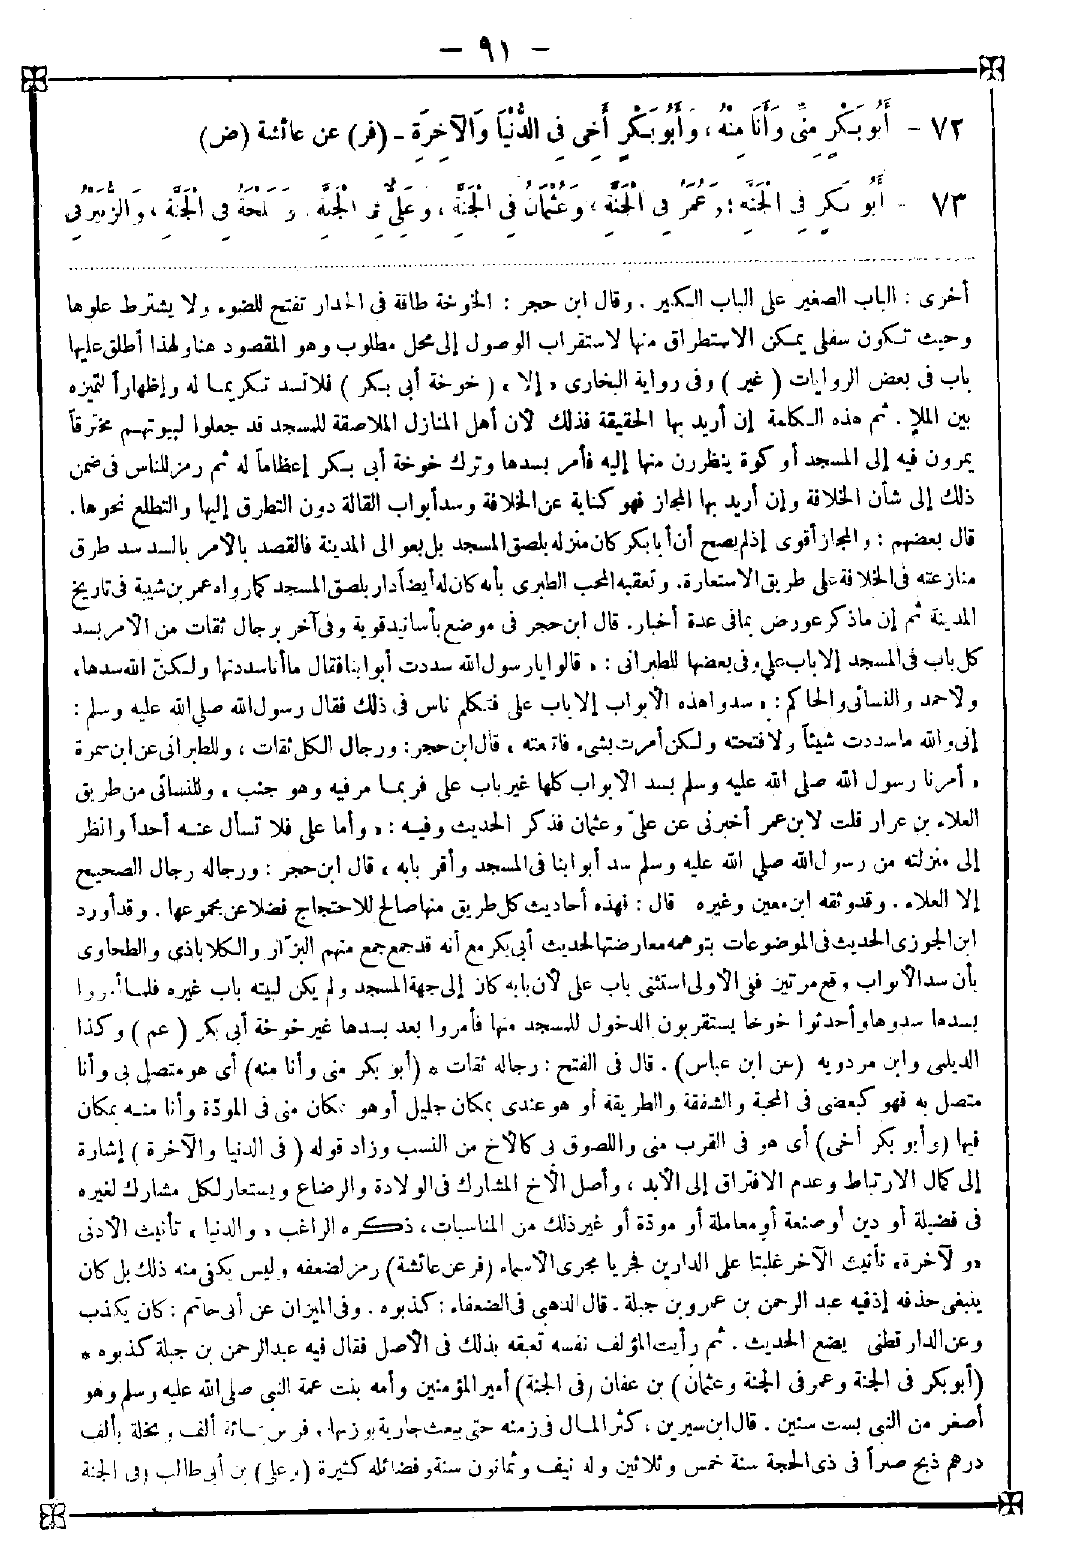 - ٩١ -
٧٢ - أَبُو بَكْرٍ مِنِّي وَأَنَا مِنْهُ، وَأَبُو بَكْرٍ أَخِي فِي الدُّنْيَا وَالآخِرَةِ - (فر) عن عائشة (ض)
٧٣ - أَبُو بَكْرٍ فِي الْجَنَّةِ، وَعُمَرُ فِي الْجَنَّةِ، وَعُثْمَانُ فِي الْجَنَّةِ، وَعَلِيٌّ فِي الْجَنَّةِ، وَطَلْحَةُ فِي الْجَنَّةِ، وَالزُّبَيْرُ فِي
أخرى : الباب الصغير على الباب الكبير . وقال ابن حجر : الخوخة طاقة فى الجدار تفتح للضوء ولا يشترط علوها
وحيث تكون سفلى يمكن الاستطراق منها لاستقراب الوصول إلى محل مطلوب وهو المقصود هنا ولهذا أطلق عليها
باب فى بعض الروايات ( غير ) وفى رواية البخارى « إلا » ( خوخة أبى بكر ) فلا تسد تكريما له وإظهاراً لتميزه
بين الملإ . ثم هذه الكلمة إن أريد بها الحقيقة فذلك لأن أهل المنازل الملاصقة للمسجد قد جعلوا لبيوتهم مخترقاً
يمرون فيه إلى المسجد أو كوة ينظرون منها إليه فأمر بسدها وترك خوخة أبى بكر إعظاماً له ثم رمز للناس فى ضمن
ذلك إلى شأن الخلافة وإن أريد بها المجاز فهو كناية عن الخلافة وسد أبواب القالة دون التطرق إليها والتطلع نحوها .
قال بعضهم : والمجاز أقوى إذ لم يصح أن أبا بكر كان منزله بلصق المسجد بل بعوالى المدينة فالقصد بالأمر بالسد سد طرق
منازعته فى الخلافة على طريق الاستعارة. وتعقبه المحب الطبرى بأنه كان له أيضاً دار بلصق المسجد كما رواه عمر بن شيبة فى تاريخ
المدينة ثم إن ما ذكر عورض بما فى عدة أخبار. قال ابن حجر فى موضع بأسانيد قوية وفى آخر برجال ثقات من الأمر بسد
كل باب فى المسجد إلا باب علي وفى بعضها للطبرانى : « قالوا يا رسول الله سددت أبوابنا فقال ما أنا سددتها ولكنّ الله سدها»
ولأحمد والنسائى والحاكم : « سدوا هذه الأبواب إلا باب على فتكلم ناس فى ذلك فقال رسول الله صلى الله عليه وسلم :
إنى والله ما سددت شيئاً ولا فتحته ولكن أمرت بشىء فاتبعته » قال ابن حجر: ورجال الكل ثقات ، وللطبرانى عن ابن سمرة
« أمرنا رسول الله صلى الله عليه وسلم بسد الأبواب كلها غير باب على فربما مر فيه وهو جنب » وللنسائى من طريق
العلاء بن عرار قلت لابن عمر أخبرنى عن علىّ وعثمان فذكر الحديث وفيه : « وأما على فلا تسأل عنه أحداً وانظر
إلى منزلته من رسول الله صلى الله عليه وسلم سد أبوابنا فى المسجد وأقر بابه » قال ابن حجر : ورجاله رجال الصحيح
إلا العلاء . وقد وثقه ابن معين وغيره قال : فهذه أحاديث كل طريق منها صالح للاحتجاج فضلا عن مجموعها . وقد أورد
ابن الجوزى الحديث فى الموضوعات بتوهمه معارضتها لحديث أبى بكر مع أنه قد جمع جمع منهم البزار والكلاباذى والطحاوى
بأن سد الأبواب وقع مرتين ففى الأولى استثنى باب على لأن بابه كان إلى جهة المسجد ولم يكن لبيته باب غيره فلما أمروا
بسدها سدوها وأحدثوا خوخا يستقربون الدخول للمسجد منها فأمروا بعد بسدها غير خوخة أبى بكر ( عم ) وكذا
الديلمى وابن مردويه (عن ابن عباس) . قال فى الفتح : رجاله ثقات * (أبو بكر منى وأنا منه) أى هو متصل بى وأنا
متصل به فهو كبعضى فى المحبة والشفقة والطريقة أو هو عندى بمكان جليل أو هو بمكان منى فى المودّة وأنا منه بمكان
فيها (وأبو بكر أخى) أى هو فى القرب منى واللصوق بى كالأخ من النسب وزاد قوله ( فى الدنيا والآخرة ) إشارة
إلى كمال الارتباط وعدم الافتراق إلى الأبد ، وأصل الأخ المشارك فى الولادة والرضاع ويستعار لكل مشارك لغيره
فى فضيلة أو دين أو صنعة أو معاملة أو مودّة أو غير ذلك من المناسبات ، ذكره الراغب « والدنيا » تأنيث الأدنى
«والآخرة» تأنيث الآخر غلبتا على الدارين فجريا مجرى الأسماء (فر عن عائشة) رمز لضعفه وليس يكفى منه ذلك بل كان
ينبغى حذفه إذ فيه عبد الرحمن بن عمرو بن جبلة . قال الذهبى فى الضعفاء : كذبوه . وفى الميزان عن أبى حاتم : كان يكذب
وعن الدارقطنى يضع الحديث . ثم رأيت المؤلف نفسه تعقبه بذلك فى الأصل فقال فيه عبد الرحمن بن جبلة كذبوه *
(أبو بكر فى الجنة وعمر فى الجنة وعثمان) بن عفان (فى الجنة) أمير المؤمنين وأمه بنت عمة النبى صلى الله عليه وسلم وهو
أصغر من النبى بست سنين . قال ابن سيرين ، كثر المال فى زمنه حتى بيعت جارية بوزنها ، فرس بمائة ألف ونخلة بألف
درهم ذبح صبراً فى ذى الحجة سنة خمس وثلاثين وله نيف وثمانون سنة وفضائله كثيرة (وعلى) بن أبى طالب (فى الجنة